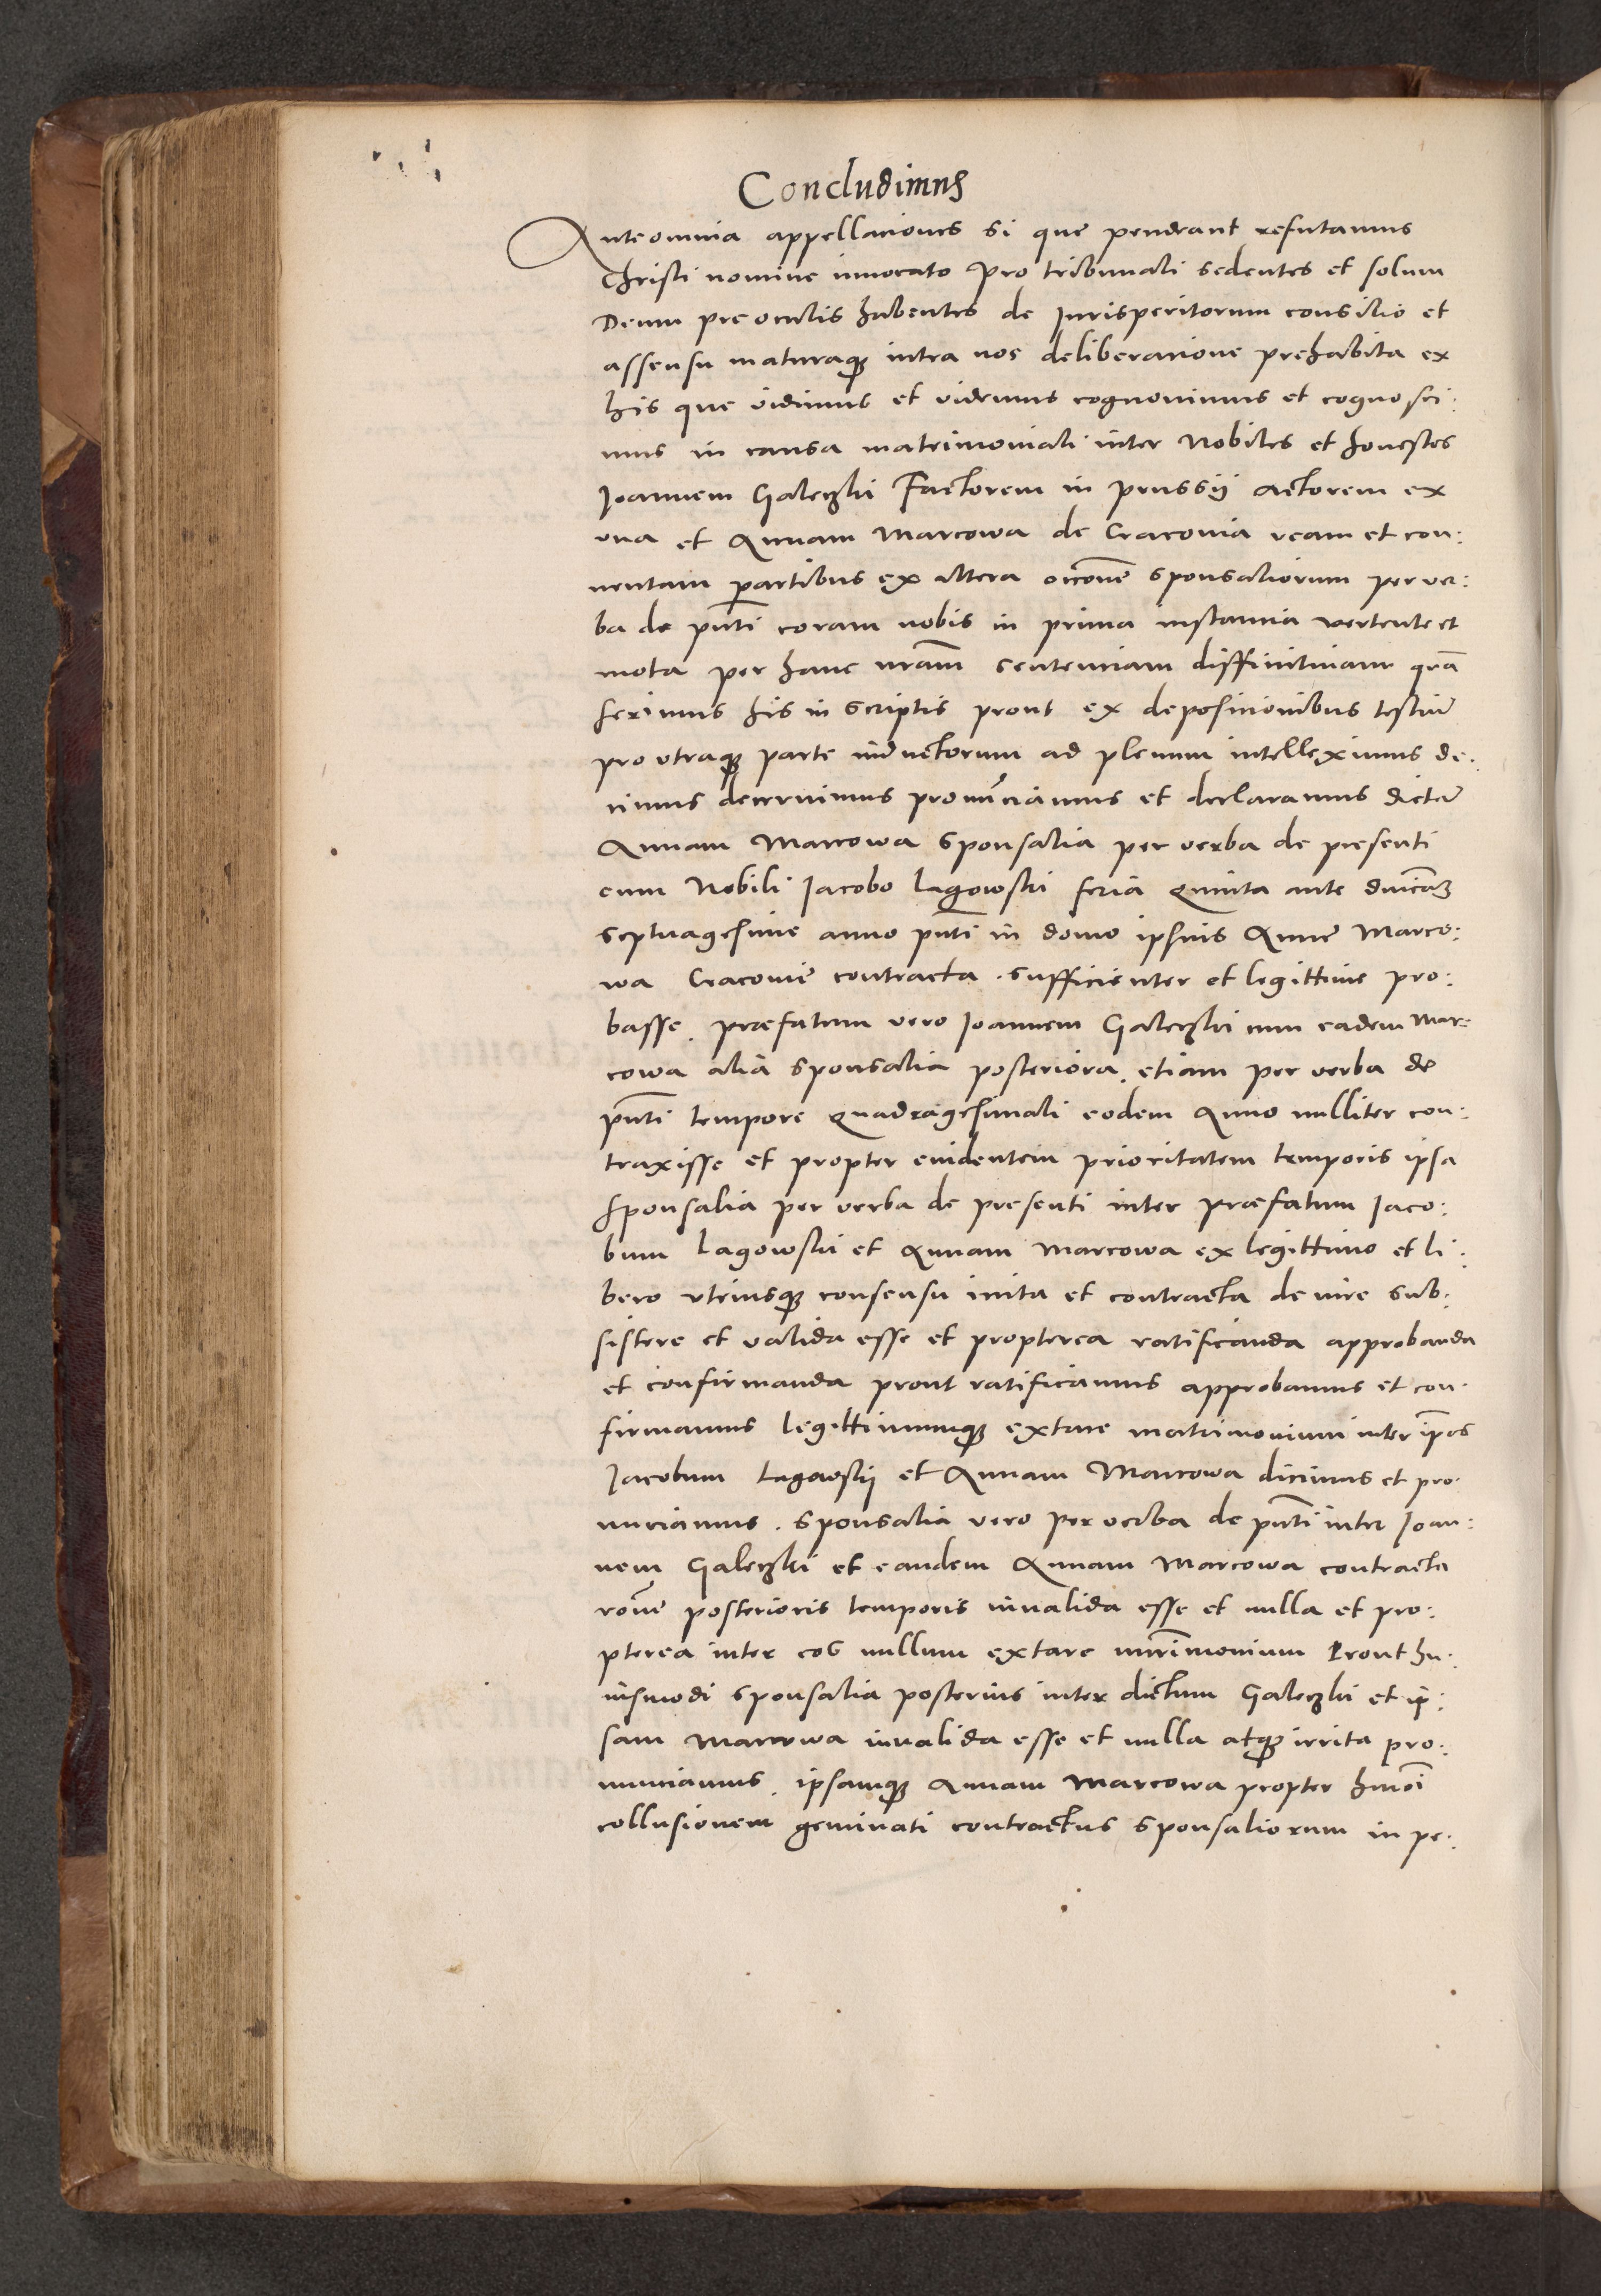 Concludimus
Ante omnia appellationes si que pendeant refutamus
Christi nomine inuocato pro tribunali sedentes et solum
Deum pre oculis habentes de Jurisperitorum consilio et
assensu maturaq₃ intra nos deliberatione prehabita ex
his que vidimus et videmus cognouimus et cognosci:
mus in causa matrimoniali inter Nobiles et honestos
Joannem Galeczki Factorem in prussij actorem ex
vna et Annam Marcowa de Cracouia ream et con:
uentam partibus ex altera occ̄oне sponsaliorum per ver:
ba de pn̄ti coram nobis in prima instantia vertente et
mota per hanc nr̄am sententiam diffinitiuam quā
ferimus his in scriptis prout ex depositionibus testiū
pro vtraq₃ parte inductorum ad plenum intelleximus di:
cimus decernimus pronūciamus et declaramus dictā
Annam Marcowa sponsalia per verba de presenti
cum Nobili Jacobo Lagowski feria Quinta ante dn̄icā₃
septuagesime anno pn̄ti in domo ipsius Anne Marco:
wa Cracouie contracta . sufficienter et legittime pro:
basse . præfatum vero Joannem Galeczki cum eadem Mar:
cowa alia sponsalia posteriora . etiam per verba de
pn̄ti tempore quadragesimali eodem Anno nulliter con:
traxisse et propter euidentem prioritatem temporis ipsa
sponsalia per verba de presenti inter præfatum Jaco:
bum Lagowski et Annam Marcowa ex legittimo et li:
bero vtriusq₃ consensu inita et contracta de iure sub:
sistere et valida esse et propterea ratificanda approbanda
et confirmanda prout ratificamus approbamus et con:
firmamus legittimumq₃ extare matrimonium inter ip̄os
Jacobum Lagowskij et Annam Marcowa dicimus et pro:
nuciamus . sponsalia vero per verba de pn̄ti inter Joan:
nem Galeczki et eandem Annam Marcowa contracta
rōne posterioris temporis inualida esse et nulla et pro:
pterea inter eos nullum extare mr̄imonium Prout hu:
iusmodi sponsalia posterius inter dictum Galeczki et ip:
sam Marcowa inualida esse et nulla atq₃ irrita pro:
nunciamus . ipsamq₃ Annam Marcowa propter hmōi
collusionem geminati contractus sponsaliorum in pe: